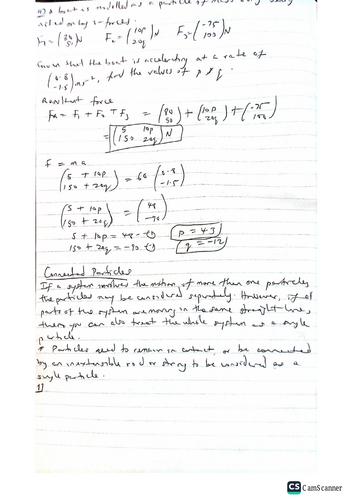 a boat is modelled as a particle of mass 60kg being
acted on by 3 forces.
F₁ = (80 50) N F₂ = (10p 20q) N F₃ = (-75 100) N
Given that the boat is accelerating at a rate of
(0.8 -1.5) ms⁻², find the values of p & q.
Resultant force
FR = F₁ + F₂ + F₃ = (80 50) + (10p 20q) + (-75 100)
= (5 10p 150 20q) N
F = ma
(5 + 10p 150 + 20q) = 60 (0.8 -1.5)
(5 + 10p 150 + 20q) = (48 -90)
5 + 10p = 48 p = 4.3
150 + 20q = -90 q = -12
Connected Particles
If a system involves the motion of more than one particles
the particles may be considered separately. However, if all
parts of the system are moving in the same straight line,
then you can also treat the whole system as a single
particle.
* Particles need to remain in contact, or be connected
by an inextensible rod or string to be considered as a
single particle.
1)
CS CamScanner